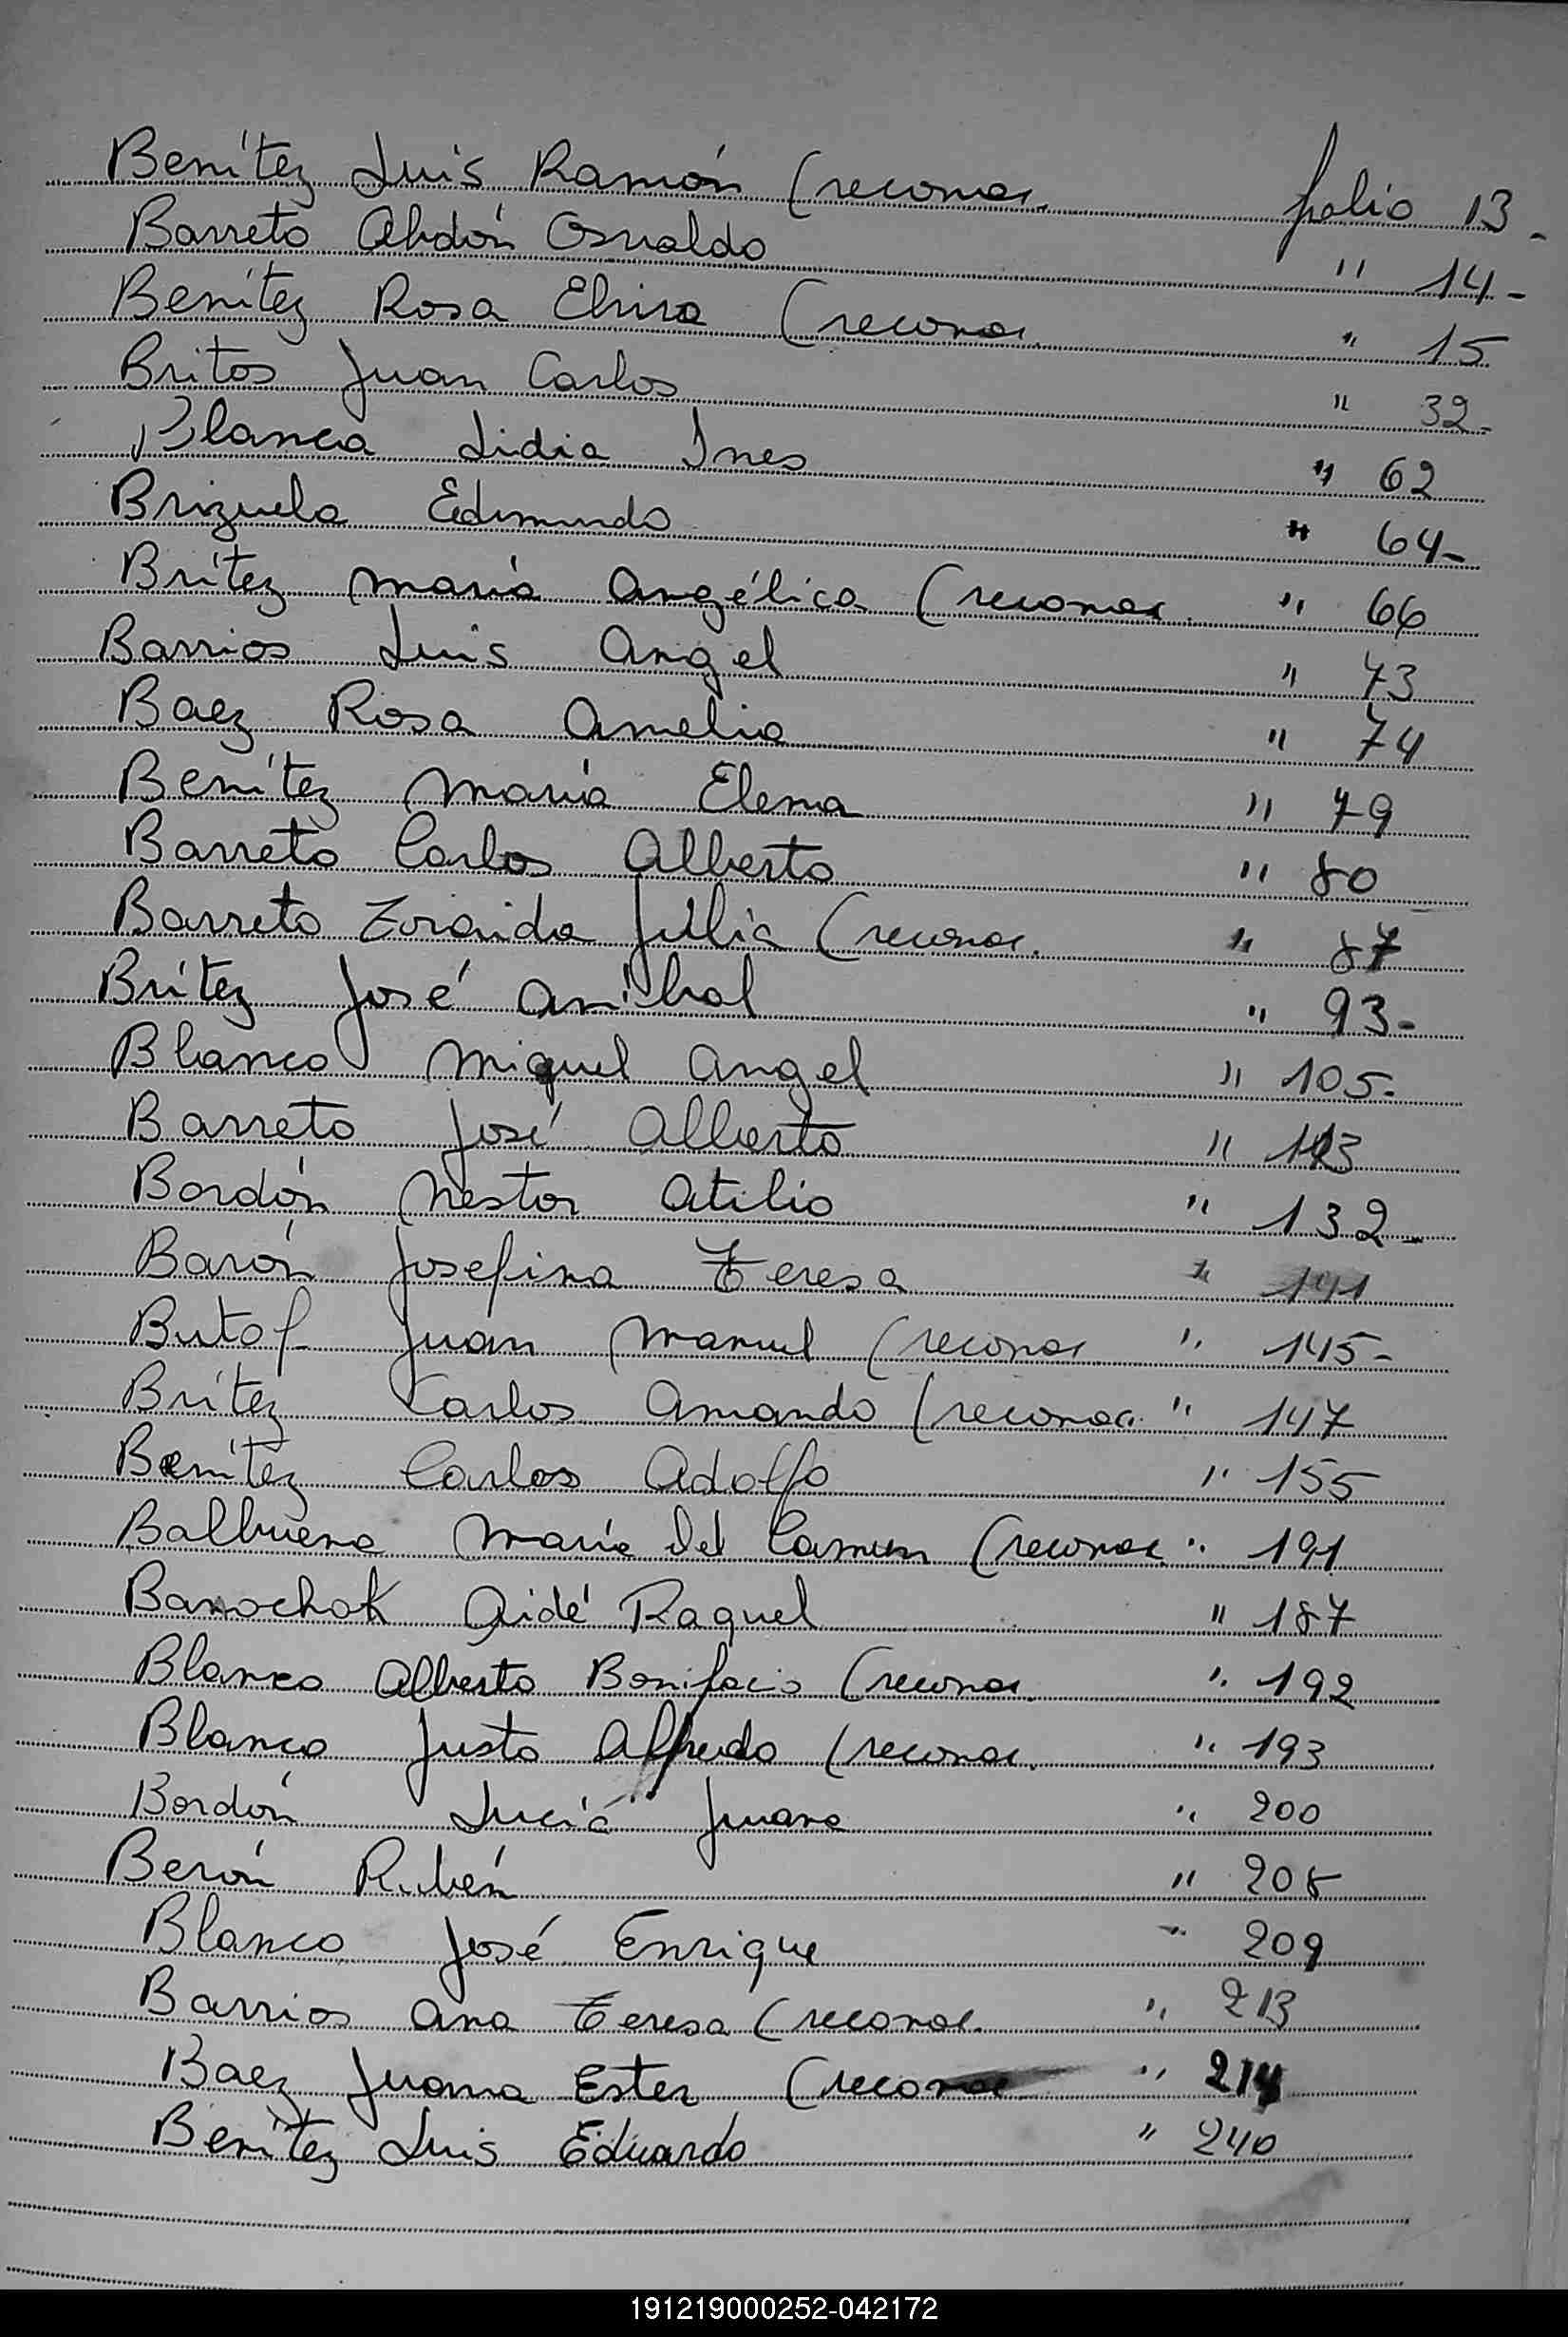 Benítez Luis Ramón (reconoc. folio 13-
Barreto Abdón Osvaldo " 14-
Benítez Rosa Elvira (reconoc. " 15
Britos Juan Carlos " 32-
Blanca Lidia Ines " 62
Brizuela Edmundo " 64-
Brítez María Angélica (reconoc. " 66
Barrios Luis Angel " 73
Baez Rosa Amelia " 74
Benítez María Elena " 79
Barreto Carlos Alberto " 80
Barreto Zoraida Julia (reconoc. " 87
Brítez José Aníbal " 93-
Blanco Miguel Angel " 105-
Barreto José Alberto "
Bordón Nestor Atilio " 132-
Barón Josefina Teresa " 141
Butof Juan Manuel (reconoc " 145-
Brítez Carlos Amando (reconoc. " 147
Benítez Carlos Adolfo " 155
Balbuena María del Carmen (reconoc. " 191
Banochok Aidé Raquel " 187
Blanco Alberto Bonifacio (reconoc. " 192
Blanco Justo Alfredo (reconoc. " 193
Bordón Lucía Juana " 200
Berón Rubén " 208
Blanco José Enrique " 209
Barrios Ana Teresa (reconoc. " 213
Baez Juana Ester (reconoc " 214
Benítez Luis Eduardo " 240
191219000252-042172